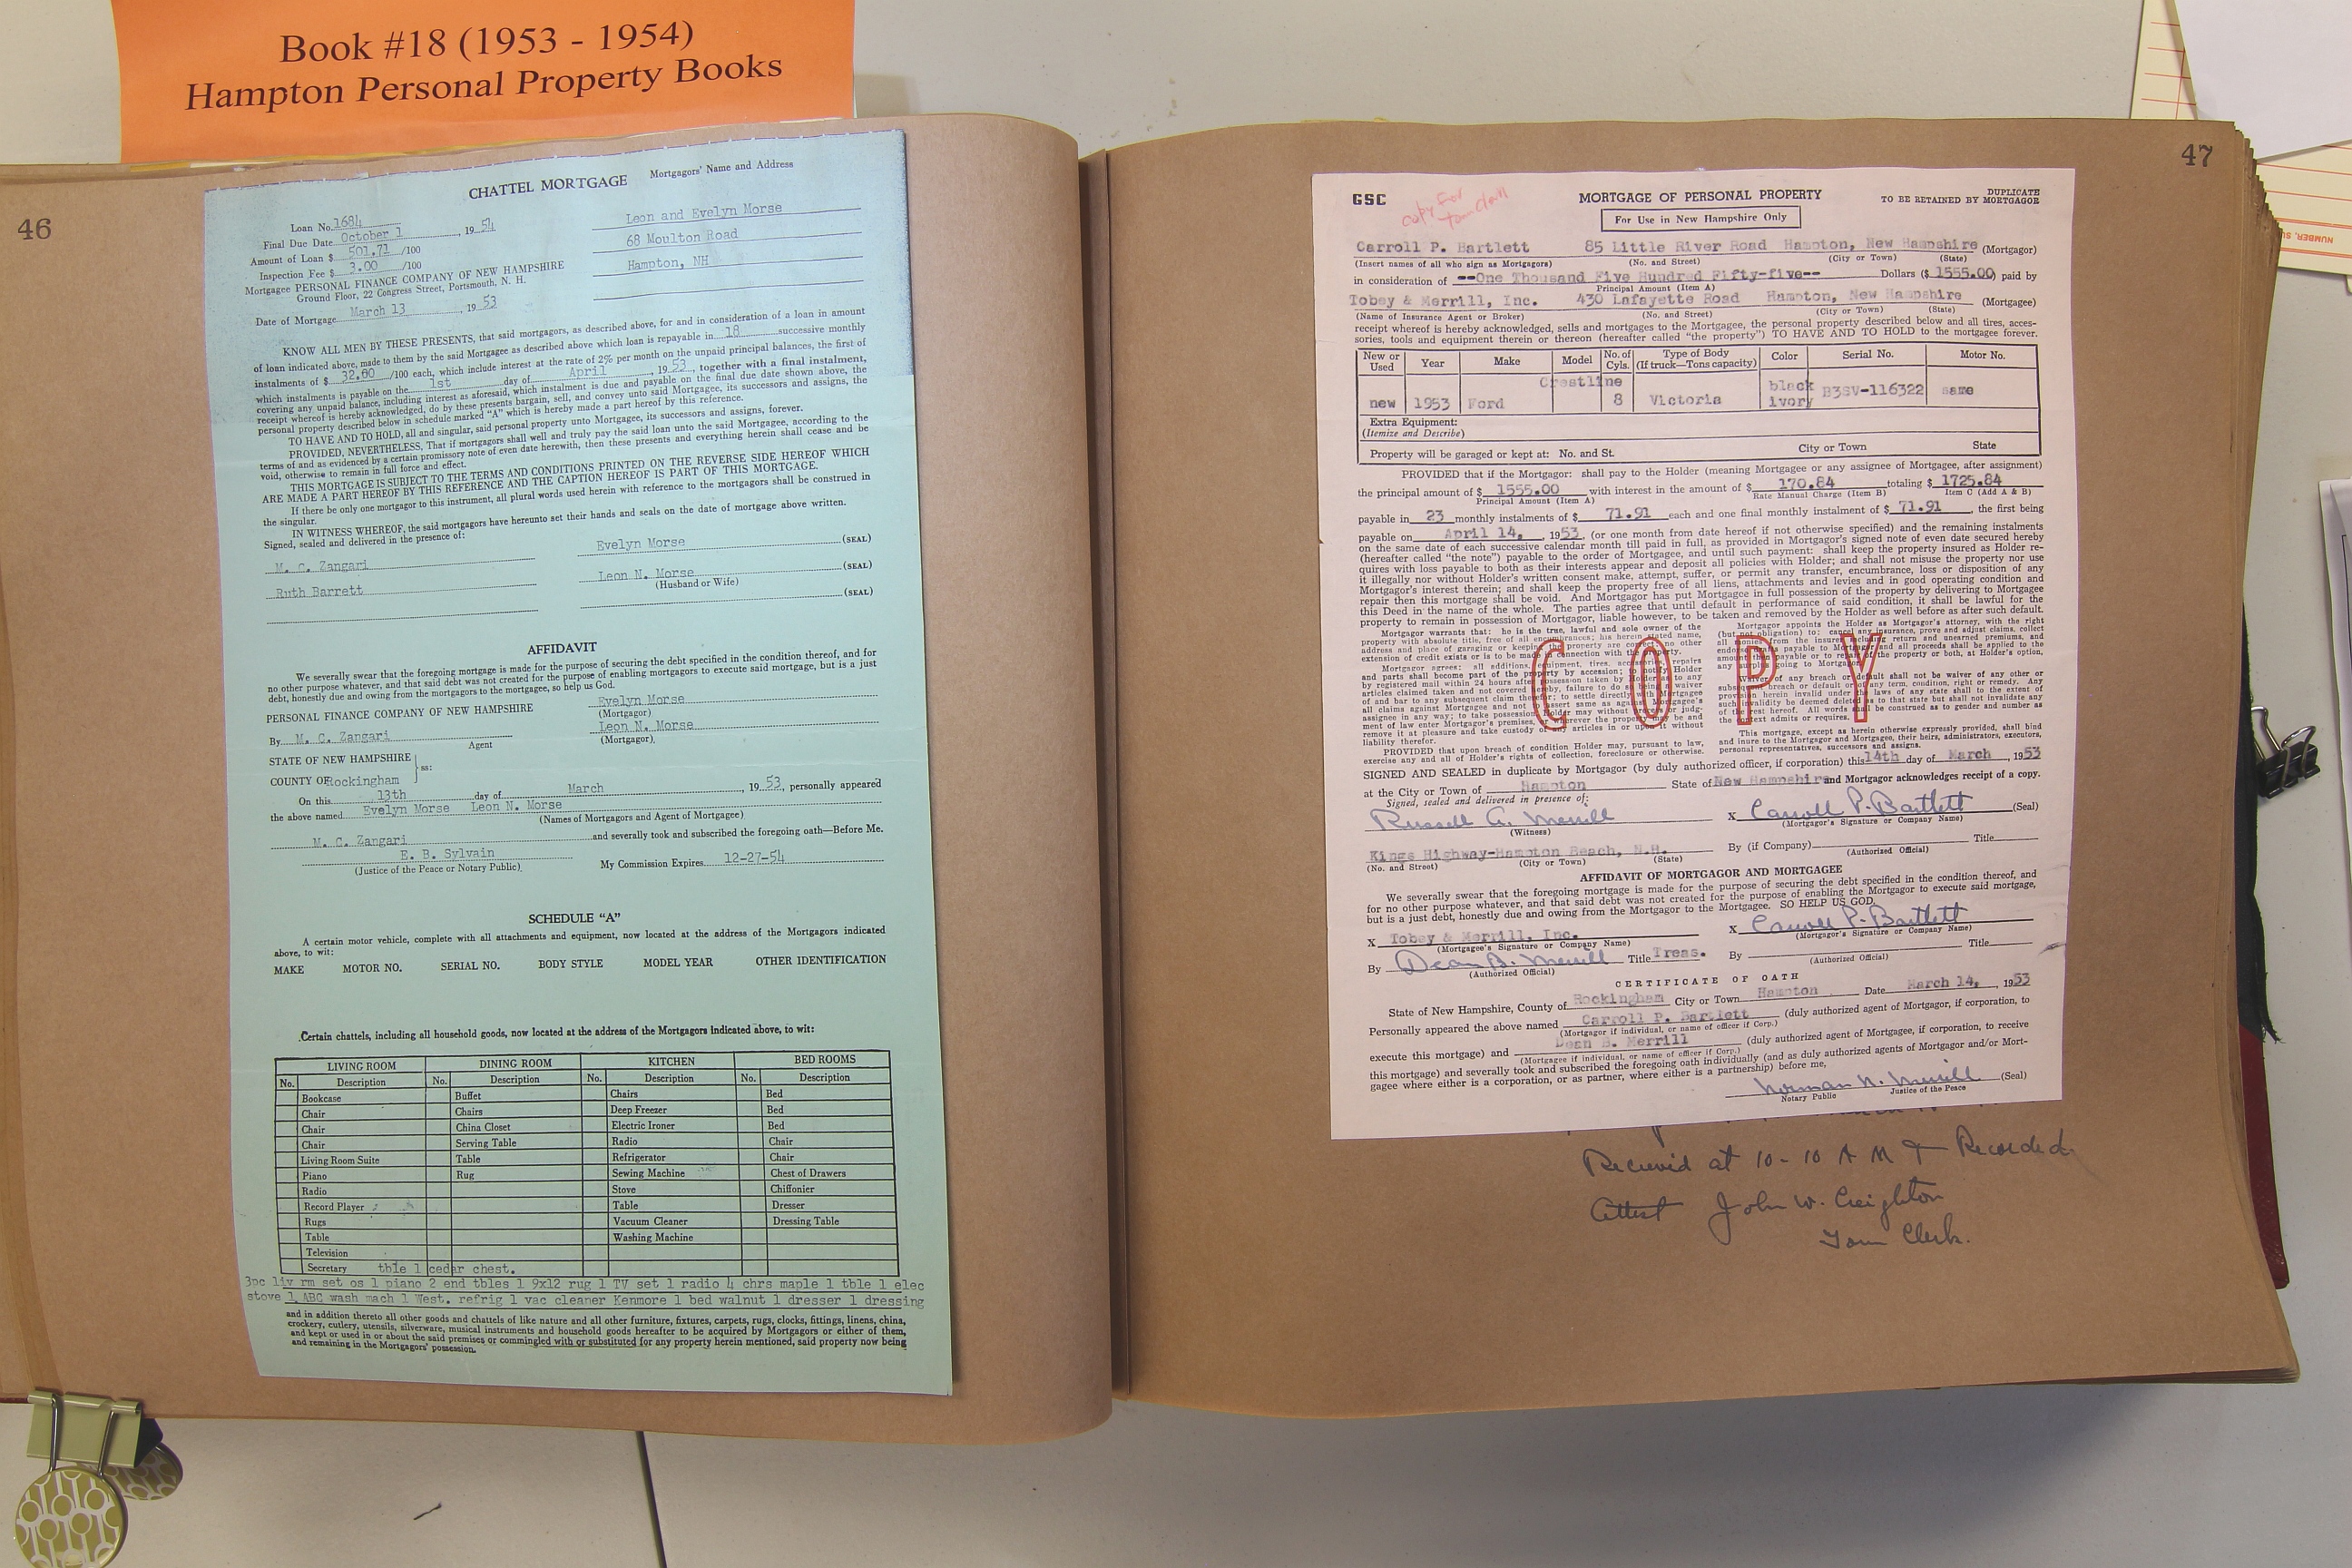 Book #18 (1953 - 1954)
Hampton Personal Property Books
46
CHATTEL MORTGAGE
Mortgagors' Name and Address
Loan No. 1684
Final Due Date October 1, 19 54
Amount of Loan $ 501.71 /100
Inspection Fee $ 3.00 /100
Mortgagee PERSONAL FINANCE COMPANY OF NEW HAMPSHIRE
Ground Floor, 22 Congress Street, Portsmouth, N. H.
Date of Mortgage March 13, 19 53
Leon and Evelyn Morse
68 Moulton Road
Hampton, NH
KNOW ALL MEN BY THESE PRESENTS, that said mortgagors, as described above, for and in consideration of a loan in amount
of loan indicated above, made to them by the said Mortgagee as described above which loan is repayable in 18 successive monthly
instalments of $ 32.80 /100 each, which include interest at the rate of 2% per month on the unpaid principal balances, the first of
which instalments is payable on the 1st day of April, 19 53, together with a final instalment,
covering any unpaid balance, including interest as aforesaid, which instalment is due and payable on the final due date shown above, the
receipt whereof is hereby acknowledged, do by these presents bargain, sell, and convey unto said Mortgagee, its successors and assigns, the
personal property described below in schedule marked "A" which is hereby made a part hereof by this reference.
TO HAVE AND TO HOLD, all and singular, said personal property unto Mortgagee, its successors and assigns, forever.
PROVIDED, NEVERTHELESS, That if mortgagors shall well and truly pay the said loan unto the said Mortgagee, according to the
terms of and as evidenced by a certain promissory note of even date herewith, then these presents and everything herein shall cease and be
void, otherwise to remain in full force and effect.
THIS MORTGAGE IS SUBJECT TO THE TERMS AND CONDITIONS PRINTED ON THE REVERSE SIDE HEREOF WHICH
ARE MADE A PART HEREOF BY THIS REFERENCE AND THE CAPTION HEREOF IS PART OF THIS MORTGAGE.
If there be only one mortgagor to this instrument, all plural words used herein with reference to the mortgagors shall be construed in
the singular.
IN WITNESS WHEREOF, the said mortgagors have hereunto set their hands and seals on the date of mortgage above written.
Signed, sealed and delivered in the presence of:
M. C. Zangari
Ruth Barrett
Evelyn Morse (SEAL)
Leon N. Morse (SEAL)
(Husband or Wife)
(SEAL)
AFFIDAVIT
We severally swear that the foregoing mortgage is made for the purpose of securing the debt specified in the condition thereof, and for
no other purpose whatever, and that said debt was not created for the purpose of enabling mortgagors to execute said mortgage, but is a just
debt, honestly due and owing from the mortgagors to the mortgagee, so help us God.
PERSONAL FINANCE COMPANY OF NEW HAMPSHIRE
Evelyn Morse
(Mortgagor)
Leon N. Morse
(Mortgagor)
By M. C. Zangari
Agent
STATE OF NEW HAMPSHIRE
ss:
COUNTY OF Rockingham
On this 13th day of March, 19 53, personally appeared
the above named Evelyn Morse Leon N. Morse
(Names of Mortgagors and Agent of Mortgagee)
M. C. Zangari and severally took and subscribed the foregoing oath—Before Me.
E. B. Sylvain
(Justice of the Peace or Notary Public)
My Commission Expires 12-27-54
SCHEDULE "A"
A certain motor vehicle, complete with all attachments and equipment, now located at the address of the Mortgagors indicated
above, to wit:
MAKE MOTOR NO. SERIAL NO. BODY STYLE MODEL YEAR OTHER IDENTIFICATION
Certain chattels, including all household goods, now located at the address of the Mortgagors indicated above, to wit:
LIVING ROOM DINING ROOM KITCHEN BED ROOMS
No. Description No. Description No. Description No. Description
Bookcase Buffet Chairs Bed
Chair Chairs Deep Freezer Bed
Chair China Closet Electric Ironer Bed
Chair Serving Table Radio Chair
Living Room Suite Table Refrigerator Chair
Piano Rug Sewing Machine Chest of Drawers
Radio Stove Chiffonier
Record Player Table Dresser
Rugs Vacuum Cleaner Dressing Table
Table Washing Machine
Television
Secretary tble 1 cedar chest.
3pc liv rm set os 1 piano 2 end tbles 1 9x12 rug 1 TV set 1 radio 4 chrs maple 1 tble 1 elec
stove 1 ABC wash mach 1 West. refrig 1 vac cleaner Kenmore 1 bed walnut 1 dresser 1 dressing
and in addition thereto all other goods and chattels of like nature and all other furniture, fixtures, carpets, rugs, clocks, fittings, linens, china,
crockery, cutlery, utensils, silverware, musical instruments and household goods hereafter to be acquired by Mortgagors or either of them,
and kept or used in or about the said premises or commingled with or substituted for any property herein mentioned, said property now being
and remaining in the Mortgagors' possession.
47
GSC
copy for
town clerk
MORTGAGE OF PERSONAL PROPERTY
For Use in New Hampshire Only
DUPLICATE
TO BE RETAINED BY MORTGAGOR
Carroll P. Bartlett 85 Little River Road Hampton, New Hampshire (Mortgagor)
(Insert names of all who sign as Mortgagors) (No. and Street) (City or Town) (State)
in consideration of --One Thousand Five Hundred Fifty-five-- Dollars ($ 1555.00) paid by
Principal Amount (Item A)
Tobey & Merrill, Inc. 430 Lafayette Road Hampton, New Hampshire (Mortgagee)
(Name of Insurance Agent or Broker) (No. and Street) (City or Town) (State)
receipt whereof is hereby acknowledged, sells and mortgages to the Mortgagee, the personal property described below and all tires, acces-
sories, tools and equipment therein or thereon (hereafter called "the property") TO HAVE AND TO HOLD to the mortgagee forever.
New or Used Year Make Model No. of Cyls. Type of Body (If truck—Tons capacity) Color Serial No. Motor No.
new 1953 Ford Crestline 8 Victoria black ivory B3SV-116322 same
Extra Equipment:
(Itemize and Describe)
Property will be garaged or kept at: No. and St. City or Town State
PROVIDED that if the Mortgagor: shall pay to the Holder (meaning Mortgagee or any assignee of Mortgagee, after assignment)
the principal amount of $ 1555.00 with interest in the amount of $ 170.84 totaling $ 1725.84
Principal Amount (Item A) Rate Manual Charge (Item B) Item C (Add A & B)
payable in 23 monthly instalments of $ 71.91 each and one final monthly instalment of $ 71.91, the first being
payable on April 14, 1953, (or one month from date hereof if not otherwise specified) and the remaining instalments
on the same date of each successive calendar month till paid in full, as provided in Mortgagor's signed note of even date secured hereby
(hereafter called "the note") payable to the order of Mortgagee, and until such payment: shall keep the property insured as Holder re-
quires with loss payable to both as their interests appear and deposit all policies with Holder; and shall not misuse the property nor use
it illegally nor without Holder's written consent make, attempt, suffer, or permit any transfer, encumbrance, loss or disposition of any
Mortgagor's interest therein; and shall keep the property free of all liens, attachments and levies and in good operating condition and
repair then this mortgage shall be void. And Mortgagor has put Mortgagee in full possession of the property by delivering to Mortgagee
this Deed in the name of the whole. The parties agree that until default in performance of said condition, it shall be lawful for the
property to remain in possession of Mortgagor, liable however, to be taken and removed by the Holder as well before as after such default.
Mortgagor warrants that: he is the true, lawful and sole owner of the
property with absolute title, free of all encumbrances; his herein stated name,
address and place of garaging or keeping the property are correct; no other
extension of credit exists or is to be made in connection with the property.
Mortgagor agrees: all additions, equipment, tires, accessories, repairs
and parts shall become part of the property by accession; to notify Holder
by registered mail within 24 hours after repossession taken by Holder to any
articles claimed taken and not covered hereby, failure to do so being a waiver
of and bar to any subsequent claim therefor; to settle directly with Mortgagee
all claims against Mortgagee and not assert same as against Mortgagee's
assignee in any way; to take possession Holder may without notice or judg-
ment of law enter Mortgagor's premises, or wherever the property may be and
remove it at pleasure and take custody of any articles in or upon it without
liability therefor.
PROVIDED that upon breach of condition Holder may, pursuant to law,
exercise any and all of Holder's rights of collection, foreclosure or otherwise.
Mortgagor appoints the Holder as Mortgagor's attorney, with the right
(but not obligation) to: cancel any insurance, prove and adjust claims, collect
all monies from the insurer including return and unearned premiums, and
This mortgage, except as herein otherwise expressly provided, shall bind
and inure to the Mortgagor and Mortgagee, their heirs, administrators, executors,
personal representatives, successors and assigns.
COPY
SIGNED AND SEALED in duplicate by Mortgagor (by duly authorized officer, if corporation) this 14th day of March, 1953
at the City or Town of Hampton State of New Hampshire and Mortgagor acknowledges receipt of a copy.
Signed, sealed and delivered in presence of:
Russell G. Merrill X Carroll P. Bartlett (Seal)
(Witness) (Mortgagor's Signature or Company Name)
Kings Highway-Hampton Beach, N.H. By (if Company) Title
(No. and Street) (City or Town) (State) (Authorized Official)
AFFIDAVIT OF MORTGAGOR AND MORTGAGEE
We severally swear that the foregoing mortgage is made for the purpose of securing the debt specified in the condition thereof, and
for no other purpose whatever, and that said debt was not created for the purpose of enabling the Mortgagor to execute said mortgage,
but is a just debt, honestly due and owing from the Mortgagor to the Mortgagee. SO HELP US GOD.
X Tobey & Merrill, Inc. X Carroll P. Bartlett
(Mortgagee's Signature or Company Name) (Mortgagor's Signature or Company Name)
By Dean B. Merrill Title Treas. By Title
(Authorized Official) (Authorized Official)
CERTIFICATE OF OATH
State of New Hampshire, County of Rockingham City or Town Hampton Date March 14, 1953
Personally appeared the above named Carroll P. Bartlett (duly authorized agent of Mortgagor, if corporation, to
(Mortgagor if individual, or name of officer if Corp.)
execute this mortgage) and Dean B. Merrill (duly authorized agent of Mortgagee, if corporation, to receive
(Mortgagee if individual, or name of officer if Corp.)
this mortgage) and severally took and subscribed the foregoing oath individually (and as duly authorized agents of Mortgagor and/or Mort-
gagee where either is a corporation, or as partner, where either is a partnership) before me,
Norman N. Merrill (Seal)
Notary Public Justice of the Peace
Recieved at 10-10 A M & Recorded
Attest John W. Creighton
Town Clerk.
NUMBER, S